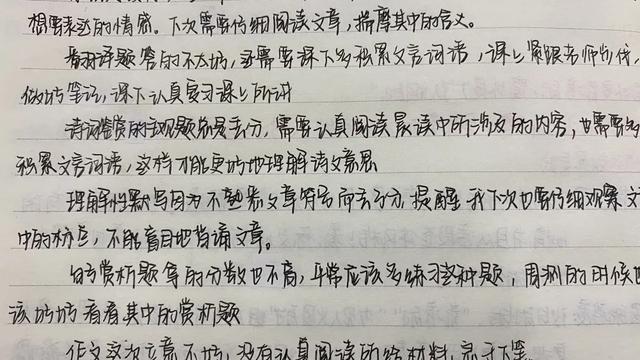 想要表达的情感。下次需要仔细阅读文章，揣摩其中的含义。
翻译题答的不太好，还需要课下多积累文言词语，课上紧跟老师步伐，
做好笔记，课下认真复习课上所讲
诗词鉴赏的主观题总是丢分，需要认真阅读晨读中所涉及的内容，也需要多
积累文言词语，这样才能更好地理解诗文意思
理解性默写因为不熟悉文章符号而丢分，提醒我下次也要仔细观察文
中的标点，不能盲目地背诵文章。
句子赏析题拿的分数也不高，平常应该多练习这种题，周测的时候也
该好好看看其中的赏析题
作文这次立意不好，没有认真阅读所给材料，